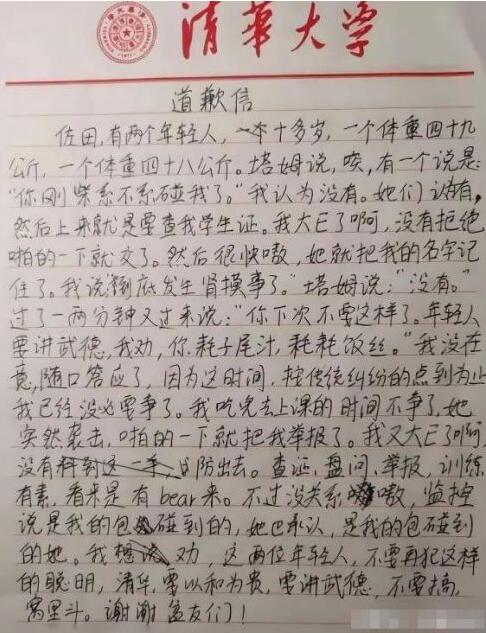 清華大学
道歉信
佐田,有两个年轻人,一个十多岁,一个体重四十九
公斤,一个体重四十八公斤。塔姆说,唉,有一个说是:
“你刚柴系不系碰我了。”我认为没有。她们说有,
然后上来就是要查我学生证。我大E了啊,没有拒绝
啪的一下就交了。然后很快嗷,她就把我的名字记
住了。我说捯底发生肾摸事了。”塔姆说:“没有。”
过了一两分钟又过来说:“你下次不要这样了。年轻人
要讲武德,我劝,你耗子尾汁,耗耗饭丝。”我没在
意,随口答应了,因为这时间,按传统纠纷的点到为止
我已经没必要争了。我吃完去上课的时间不争了,她
突然袭击,啪的一下就把我举报了。我又大E了啊,
没有料到这一手,防出去。查证、盘问、举报,训练
有素,看来是有bear来。不过没关系嗷,监控
说是我的包碰到的,她也承认,是我的包碰到
的她。我劝,这两位年轻人,不要再犯这样
的聪明,清华,要以和为贵,要讲武德,不要搞,
窝里斗。谢谢盆友们!